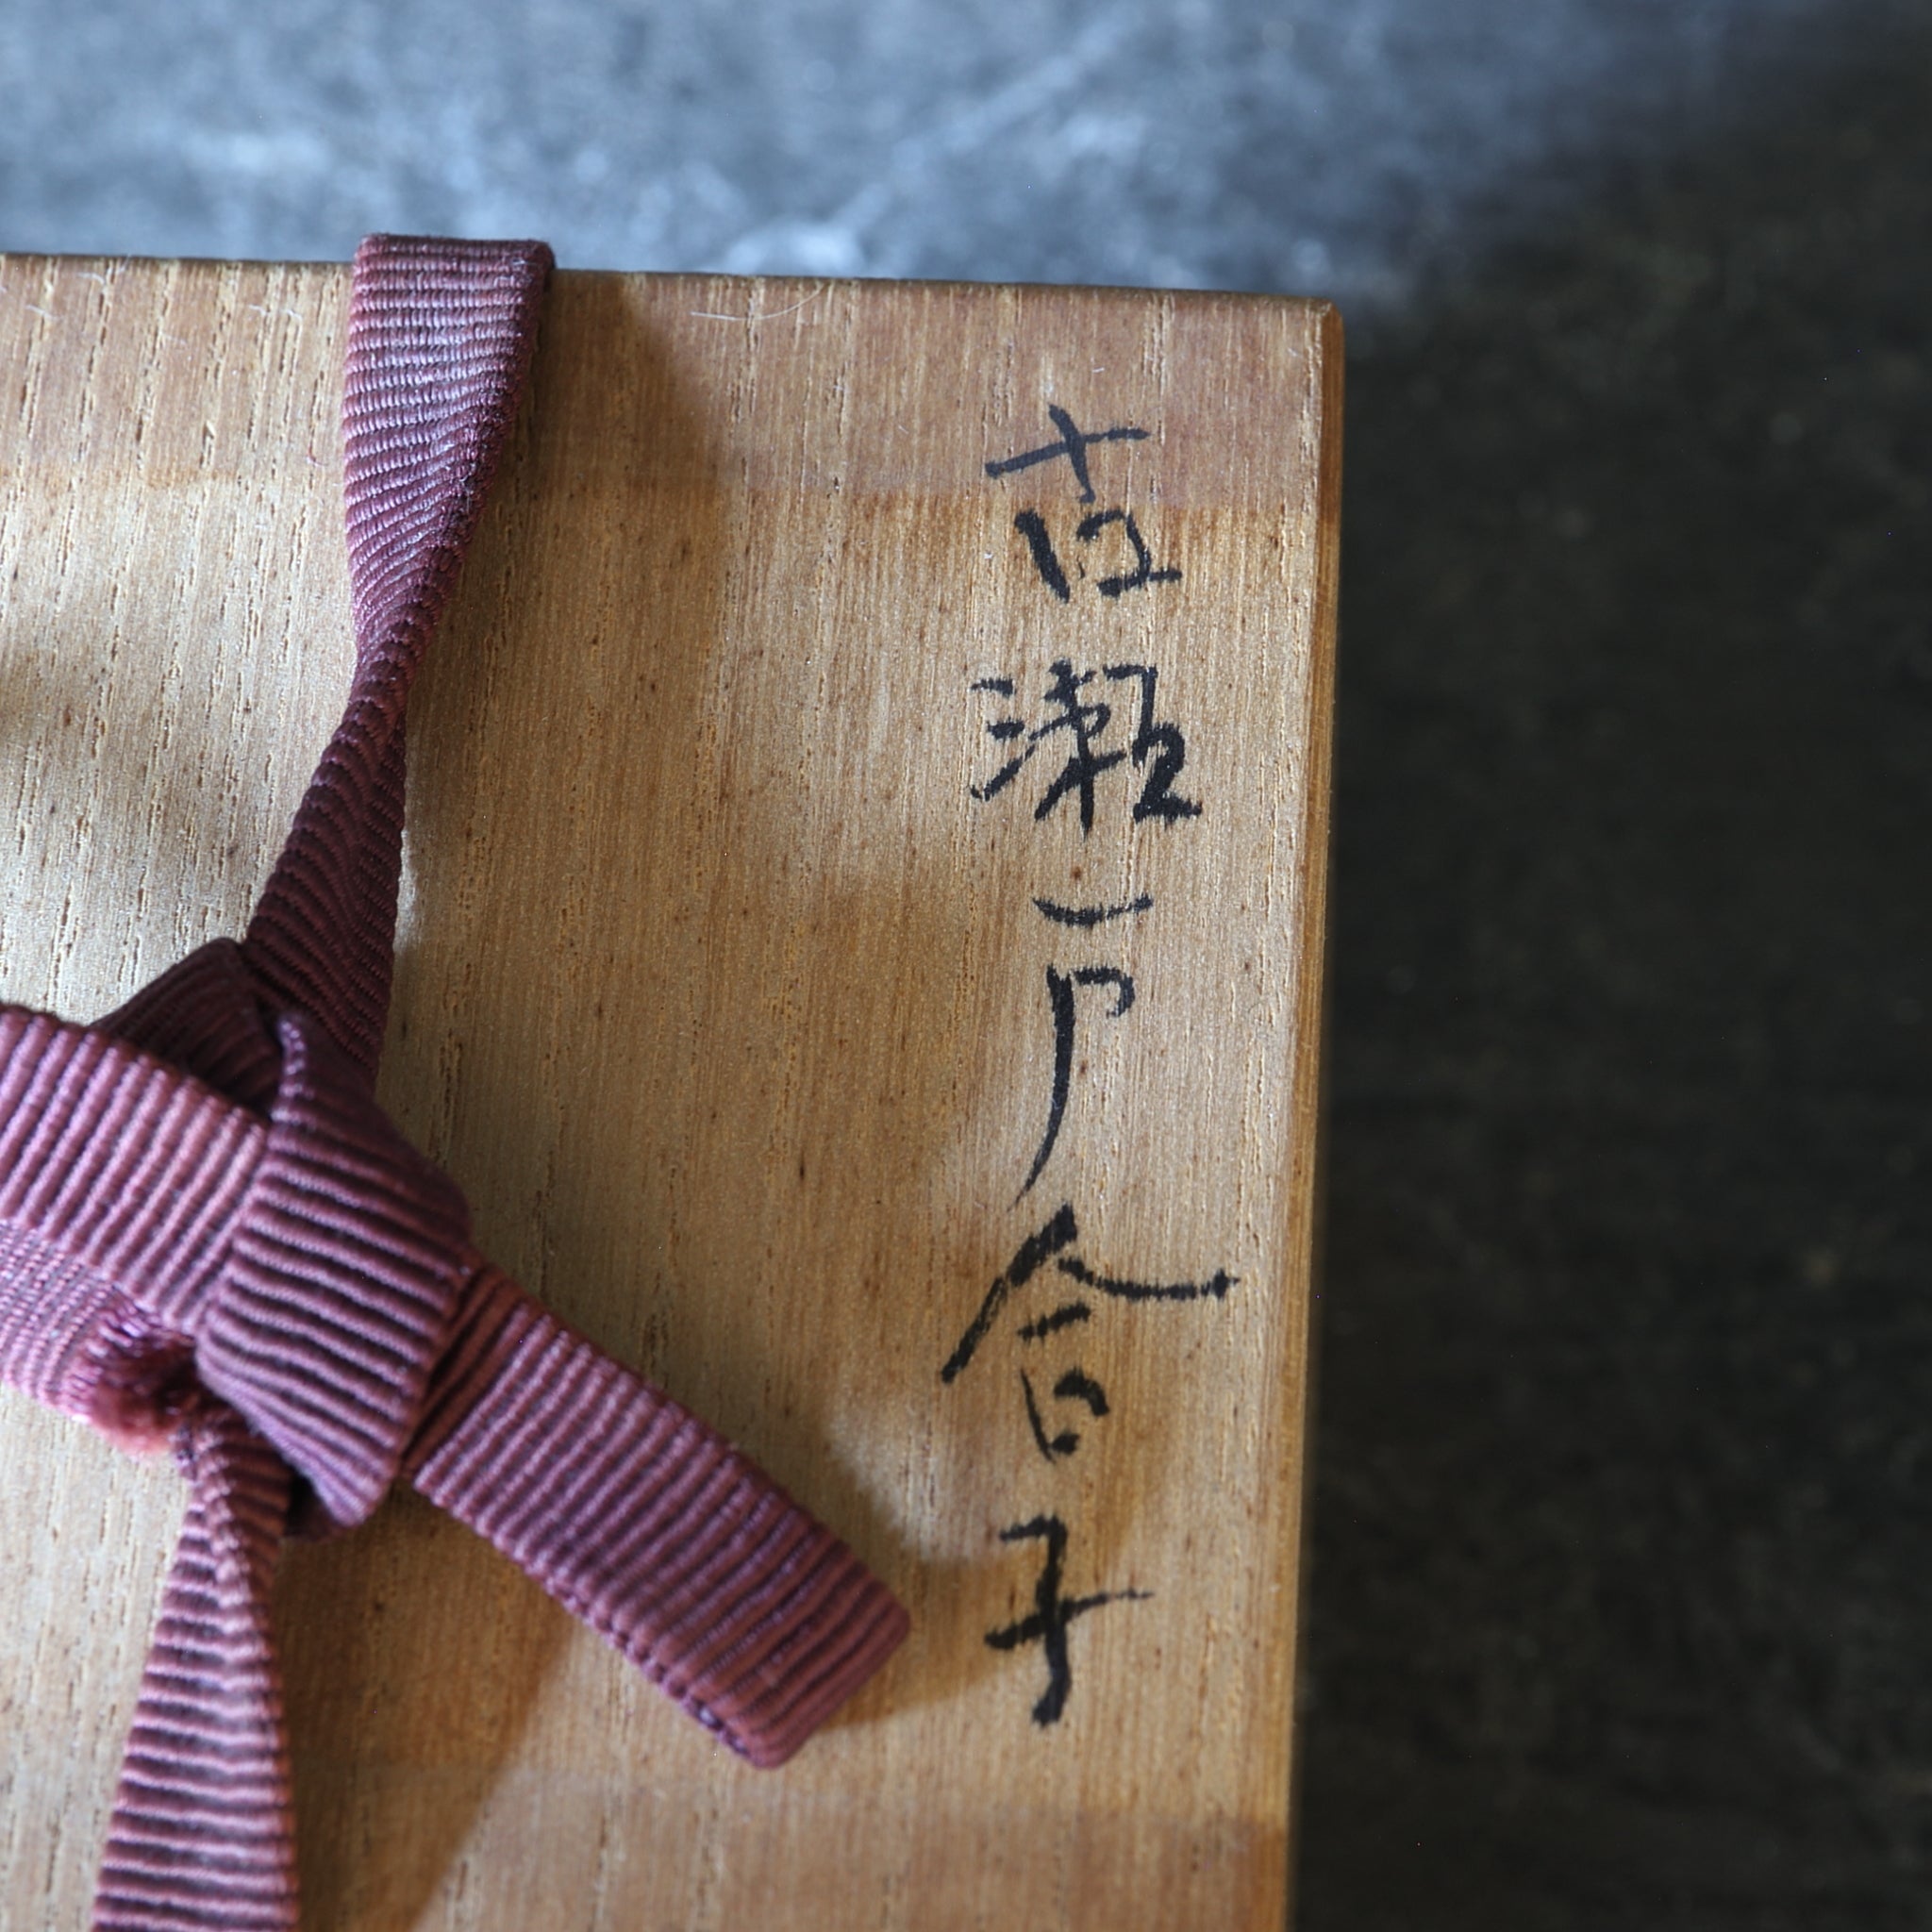 古瀬戸合子